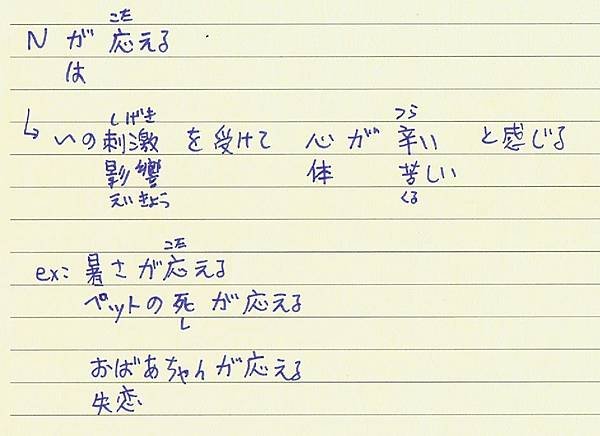 こた
N が 応える
は
しげき つら
↳ いの刺激 を受けて 心 が 辛い と感じる
影響 体 苦しい
えいきょう くる
こた
ex: 暑さが応える
ペットの死が応える
し
おばあちゃんが応える
失恋